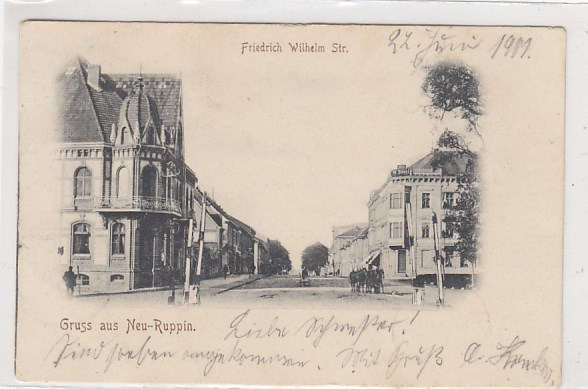 Friedrich Wilhelm Str.
22. Juni 1911.
Gruss aus Neu-Ruppin.
Liebe Schwester!
Sind soeben angekommen. Mit Gruß